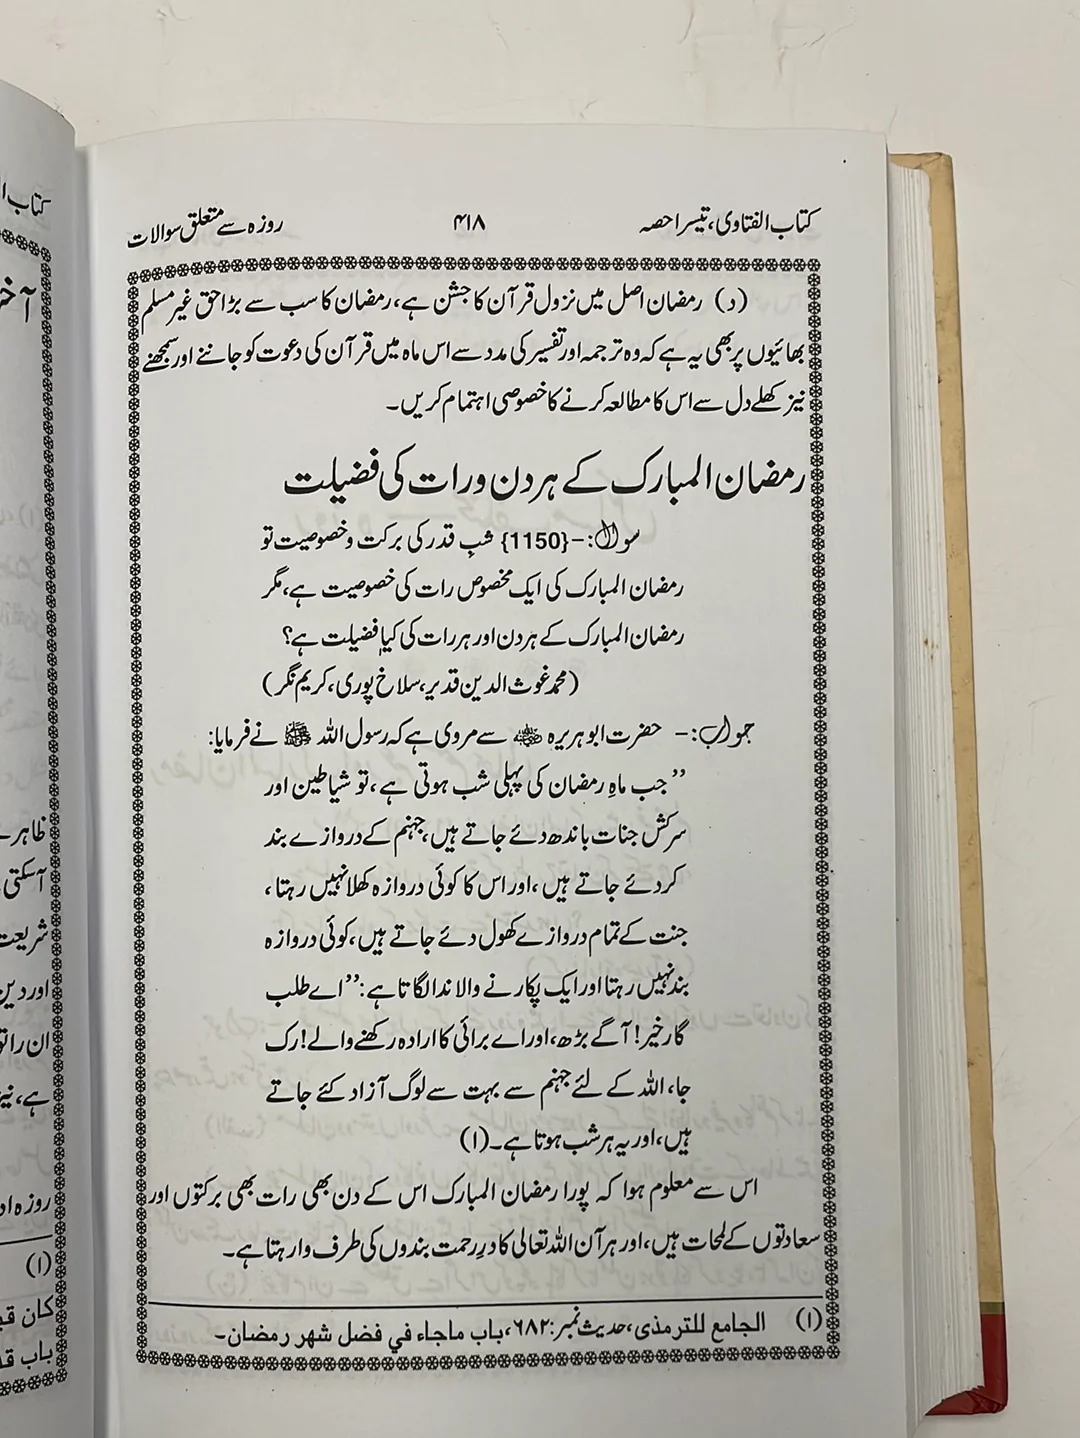 کتاب الفتاوی، تیسرا حصہ ۴۱۸ روزہ سے متعلق سوالات
(د) رمضان اصل میں نزول قرآن کا جشن ہے، رمضان کا سب سے بڑا حق غیر مسلم
بھائیوں پر بھی یہ ہے کہ وہ ترجمہ اور تفسیر کی مدد سے اس ماہ میں قرآن کی دعوت کو جاننے اور سمجھنے
نیز کھلے دل سے اس کا مطالعہ کرنے کا خصوصی اہتمام کریں۔
رمضان المبارک کے ہر دن و رات کی فضیلت
سوال:- {1150} شب قدر کی برکت و خصوصیت تو
رمضان المبارک کی ایک مخصوص رات کی خصوصیت ہے، مگر
رمضان المبارک کے ہر دن اور ہر رات کی کیا فضیلت ہے؟
(محمد غوث الدین قدیر، سلاخ پوری، کریم نگر)
جواب:- حضرت ابو ہریرہ ؓ سے مروی ہے کہ رسول اللہ ﷺ نے فرمایا:
”جب ماہِ رمضان کی پہلی شب ہوتی ہے، تو شیاطین اور
سرکش جنات باندھ دئے جاتے ہیں، جہنم کے دروازے بند
کر دئے جاتے ہیں، اور اس کا کوئی دروازہ کھلا نہیں رہتا،
جنت کے تمام دروازے کھول دئے جاتے ہیں، کوئی دروازہ
بند نہیں رہتا اور ایک پکارنے والا ندا لگاتا ہے: ”اے طلب
گار خیر! آگے بڑھ، اور اے برائی کا ارادہ رکھنے والے! رک
جا، اللہ کے لئے جہنم سے بہت سے لوگ آزاد کئے جاتے
ہیں، اور یہ ہر شب ہوتا ہے۔ (۱)
اس سے معلوم ہوا کہ پورا رمضان المبارک اس کے دن بھی رات بھی برکتوں اور
سعادتوں کے لمحات ہیں، اور ہر آن اللہ تعالی کا درِ رحمت بندوں کی طرف وا رہتا ہے۔
(۱) الجامع للترمذی، حدیث نمبر: ۶۸۲، باب ماجاء في فضل شهر رمضان۔
کتاب
ظاہر
آسکتی
شریعت
اور دین
ہے، نیز
(۱)
کان
باب